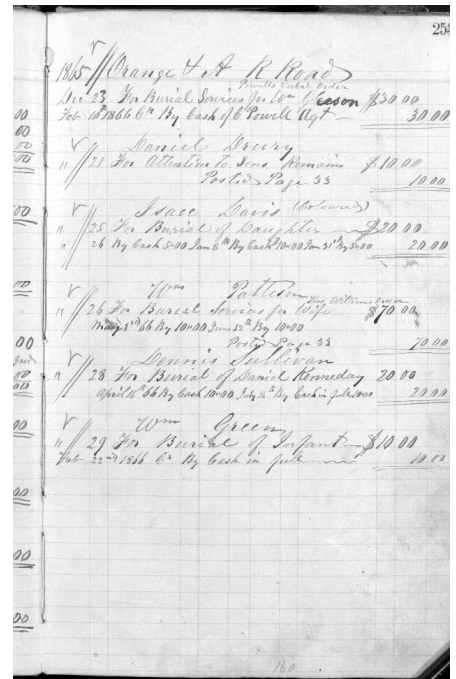 255
1865 // Orange & A R Road
Powells Verbal Order
Dec 23 For Burial Services for Wm Gleeson $30.00
Feb 10th 1866 Cr By Cash of C Powell Agt 30.00
Daniel Drury
" 21 For Attention to Sons Remains $10.00
Posted Page 33 10.00
Isaac Davis (Coloured)
" 25 For Burial of Daughter $20.00
" 26 By Cash 5.00 Jan 8th By Cash 10.00 Jan 31st By 5.00 20.00
Wm Patteson
Williams Order
" 26 For Burial Services for Wife $70.00
66 By 10.00 June By 10.00
Posted Page 33 70.00
Dennis Sullivan
" 28 For Burial of Daniel Kenneday 20.00
April 16th 66 By Cash 10.00 July 14th By Cash in full 10.00 20.00
Wm Green
" 29 For Burial of Infant $10.00
Feb 22nd 1866 Cr By Cash in full 10.00
160